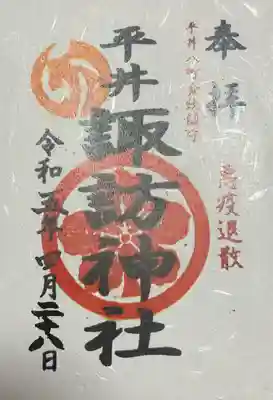 奉拝
悪疫退散
平井
諏訪神社
令和五年四月二十八日